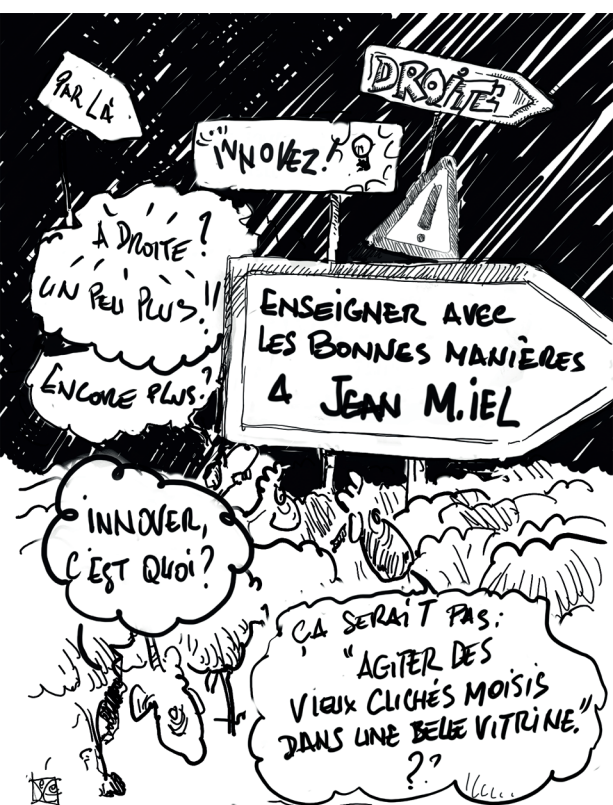 PAR LÀ
DROITE
INNOVEZ!
!
À DROITE?
UN PEU PLUS!!
ENCORE PLUS?
ENSEIGNER AVEC
LES BONNES MANIÈRES
À JEAN M.iEL
INNOVER,
C'EST QUOI?
ÇA SERAIT PAS:
"AGITER DES
VIEUX CLICHÉS MOISIS
DANS UNE BELLE VITRINE."
??